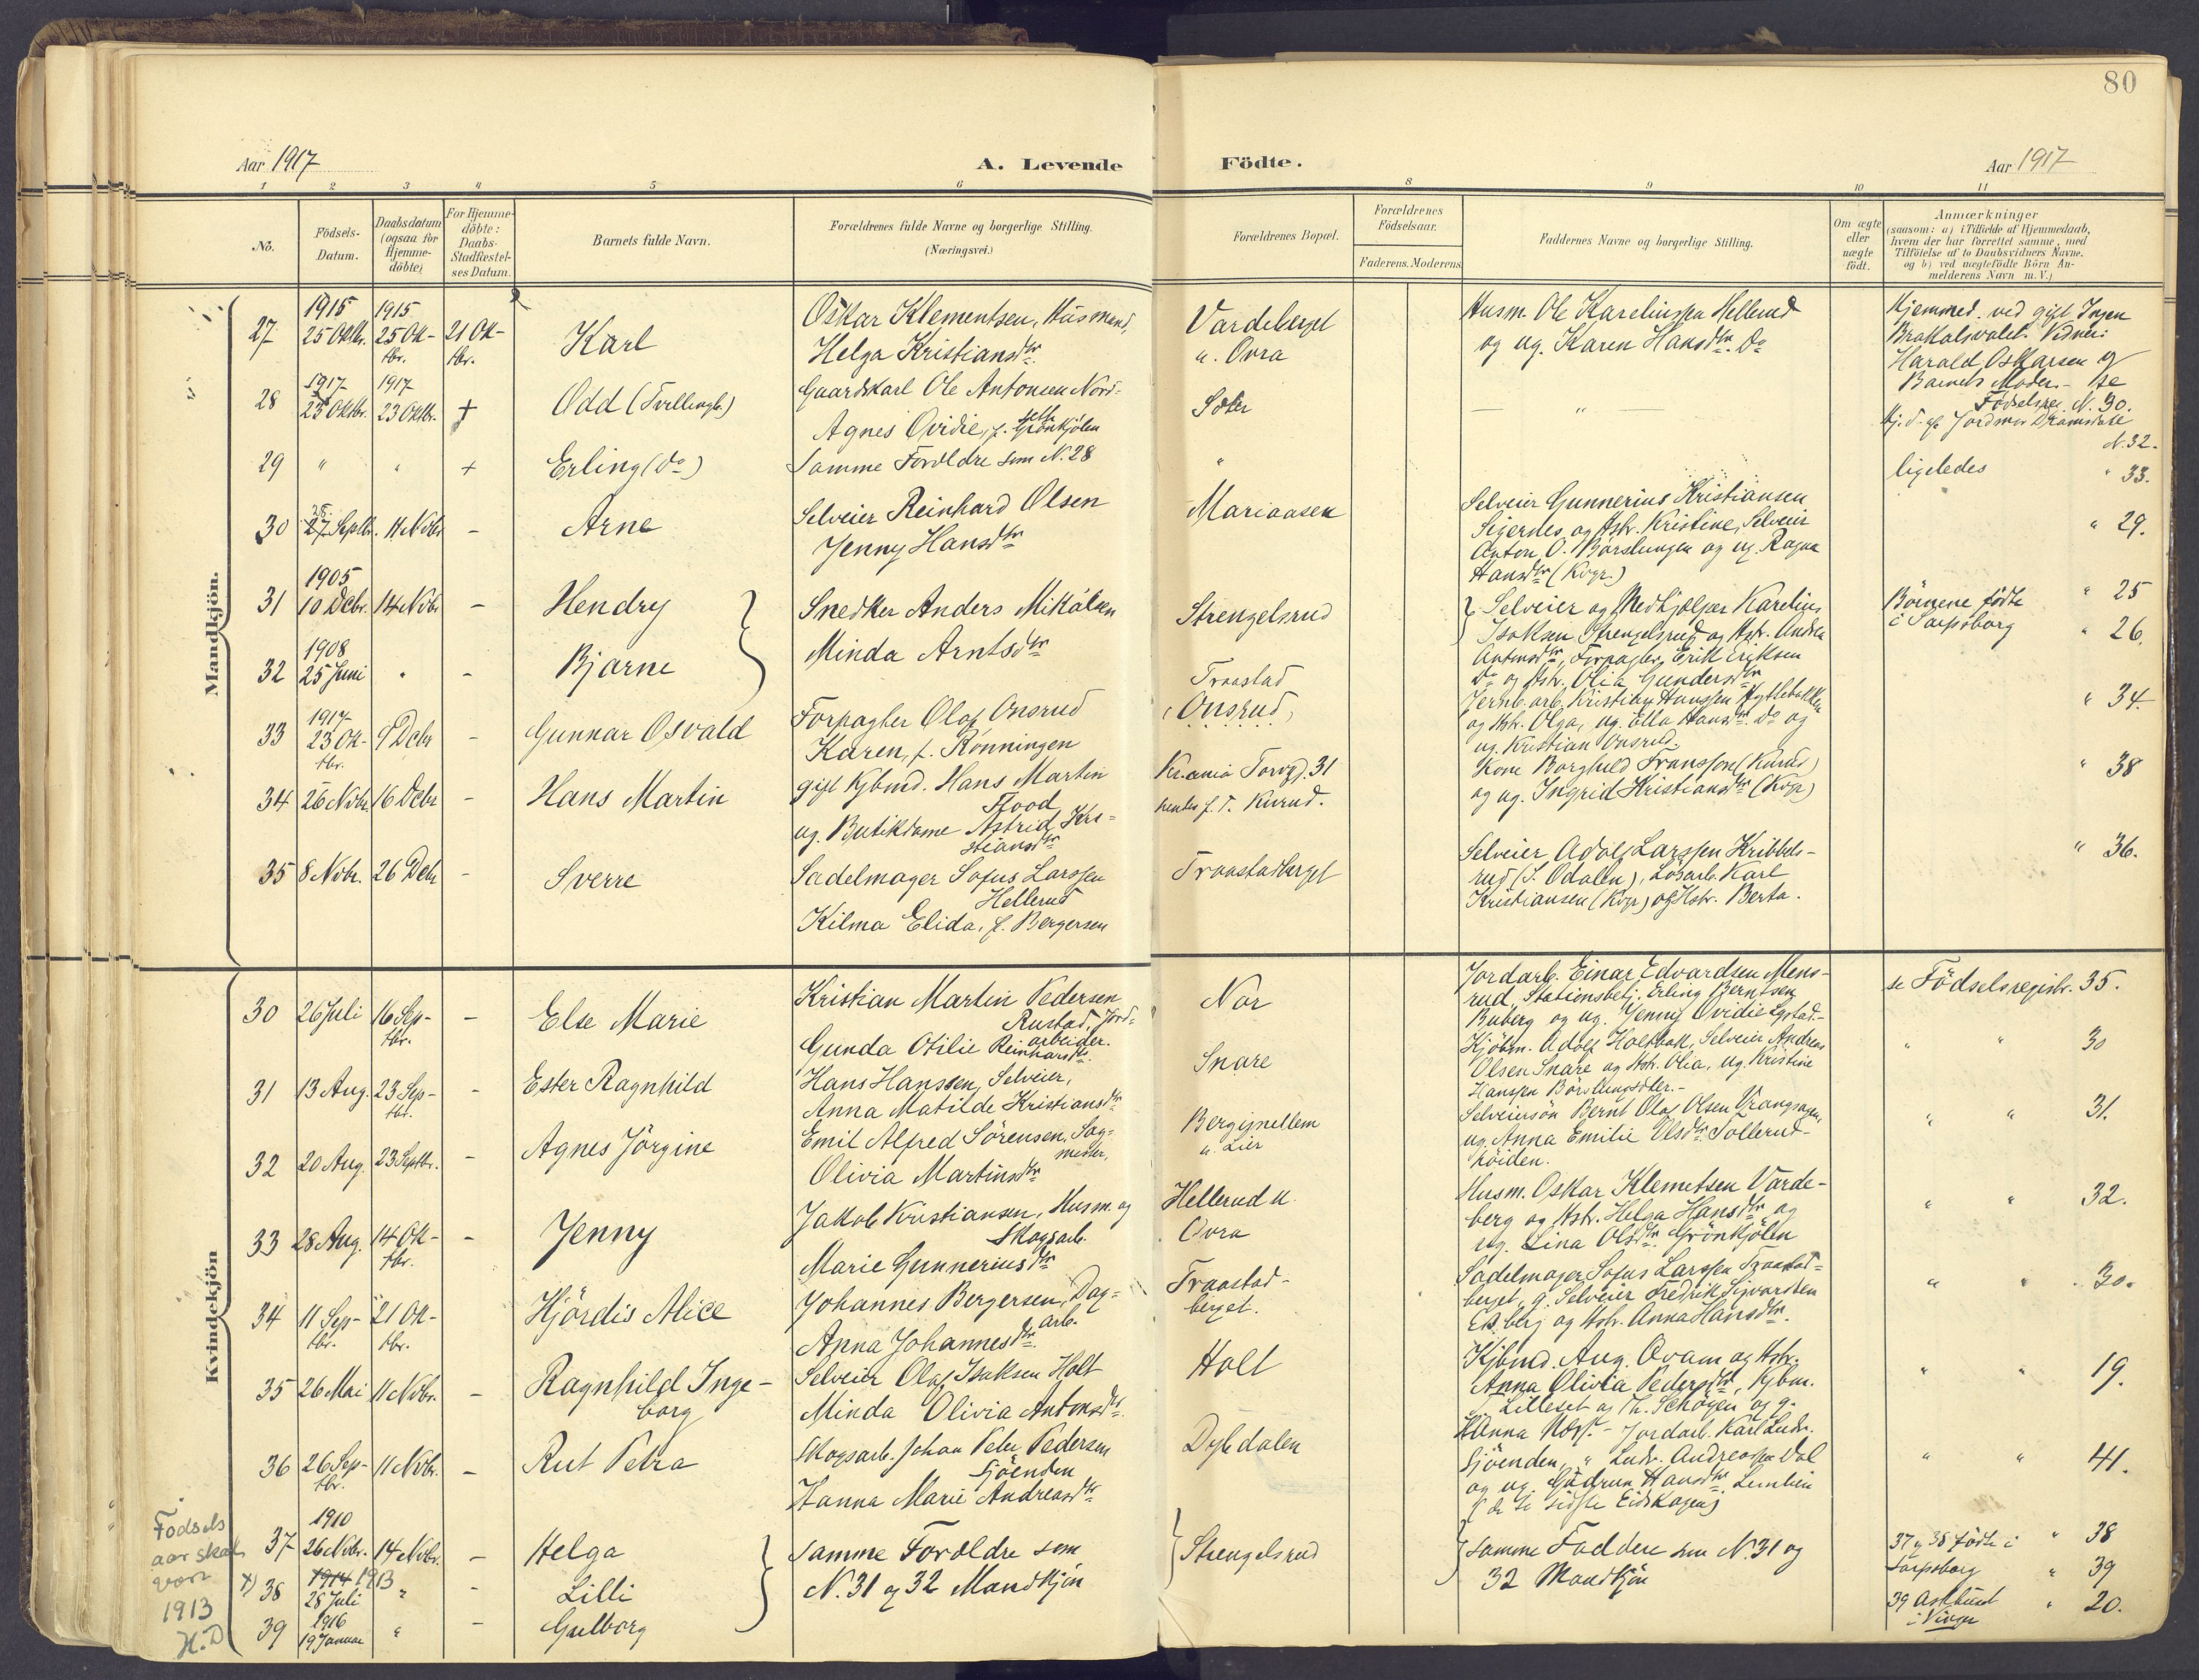 80
Aar 1917
A. Levende Födte.
Aar 1917
1 2 3 4 5 6 8 9 10 11
No.
Födsels-Datum.
Daabsdatum (ogsaa for Hjemmedöbte)
For Hjemmedöbte: Daabs-Stadfæstelses Datum.
Barnets fulde Navn.
Forældrenes fulde Navne og borgerlige Stilling.
(Næringsvei.)
Forældrenes Bopæl.
Forældrenes Födselsaar.
Faderens. Moderens
Faddernes Navne og borgerlige Stilling.
Om ægte eller uægte födt.
Anmærkninger
(saasom: a) i Tilfælde af Hjemmedaab,
hvem der har forrettet samme, med
Tilföielse af to Daabsvidners Navne,
og b) ved uægtefödte Börn An-
melderens Navn m. V.)
Mandkjön.
27 1915 25 Oktbr. 1915 25 Ok-tbr. 21 Ok-tbr. Karl
Oskar Klementsen, Husmand,
Helga Kristiansdtr
Vardeberget
u. Ovra
Husm. Ole Kareliussen Hellerud
og ug. Karen Hansdtr. Do
Hjemmed. ved gift Ingen
Vidner:
Harald Oskarsen og
Barnets Moder. - se
Födselsreg. N. 30.
28 1917 23 Oktbr. 1917 23 Oktbr. + Odd (Tvillingb.)
Gaardskarl Ole Antonsen Nord-
sette
Agnes Ovidie, f. Grönkjölen
Sæter
— " —
Hj. d. af Jordmor Dramstase
N. 32.
29 " " + Erling (Do)
Samme Forældre som N. 28
"
ligeledes " 33.
30 25. 27 Septbr. 11 Novbr - Arne
Selveier Reinhard Olsen
Jenny Hansdtr
Mariaasen
Selveier Gunnerius Kristiansen
Sigernes og Hstr. Kristine, Selveier
Anton O. Børslungen og ug. Ragna
Hansdtr (Kvgr.)
" 29.
31 1905 10 Decbr. 14 Novbr - Hendry
Snedker Anders Mikalsen
Strengelsrud
Selveier og Medhjælper Karelius
Isaksen Strengelsrud og Hstr. Andrea
Börnene födte " 25
i Sarpsborg " 26.
32 1908 25 Juni " - Bjarne
Minda Arntsdtr
Antonsdtr, Forpagter Erik Eriksen
Do og Hstr. Olia Gundersdtr
33 1917 23 Ok-tbr. 9 Decbr - Gunnar Osvald
Forpagter Olaf Onsrud
Karen, f. Rönningen
Traastad
(Onsrud)
Jernb. arb. Kristian Hanssen Hyttebakken
og Hstr. Olga, ug. Ella Hansdtr. Do og
ug. Kristian Onsrud.
" 34.
34 26 Novbr. 16 Decbr - Hans Martin
gift Kjbmd. Hans Martin
Flood
ug. Butikdame Astrid Kri-
stiansdtr
Kr.ania Torvgd. 31
Kurud.
Kone Borghild Fransson (Kurud)
og ug. Ingrid Kristiansdtr (Kvgr)
" 38
35 8 Novbr. 26 Decbr - Sverre
Sadelmager Sofus Larssen
Hellerud
Kilma Elida, f. Bergersen
Traastadberget
Selveier Adolf Larssen Kribbels-
rud (S. Odalen), Lösarb. Karl
Kristiansen (Kvgr) og Hstr. Berta.
" 36.
Kvindekjön
30 26 Juli 16 Sep-tbr. - Else Marie
Kristian Martin Pedersen
Rustad, Jord-
arbeider.
Gunda Otilie Reinhardsdtr.
Nor
Jordarb. Einar Edvardsen Mens-
rud, Stationsbetj. Erling Berntsen
Buberg og ug. Jenny Ovidie Lystad.-
se Födselsregistr. 35.
31 13 Aug. 23 Sep-tbr. - Ester Ragnhild
Hans Hanssen, Selveier,
Anna Matilde Kristiansdtr
Snare
Kjöbm. Adolf Holtbak, Selveier Andreas
Olsen Snare og Hstr. Olia, ug. Kristine
Hanssen
" " 30
32 20 Aug. 23 Septbr. - Agnes Jörgine
Emil Alfred Sörensen, Sag-
mester,
Olivia Martinsdtr
Bergignellem
u. Lier
Selveiersön Bernt Olaf Olsen Vrangsagen,
ug. Anna Emilie Olsdtr. Sollerud-
höiden.
" " 31.
33 28 Aug. 14 Ok-tbr. - Jenny
Jakob Kristiansen, Husm. og
Skogsarb.
Marie Gunneriusdtr
Hellerud u.
Ovra
Husm. Oskar Klemetsen Varde-
berg og Hstr. Helga Hansdtr og
ug. Lina Olsdtr. Grönkjölen
" " 32.
34 11 Sep-tbr. 21 Ok-tbr. Hjördis Alice
Johannes Bergersen, Dag-
arb.
Anna Johannesdtr.
Traastad-
berget.
Sadelmager Sofus Larssen Traastad-
berget, g. Selveier Fredrik Sigvardsen
Ek.berg og Hstr. Anna Hansdtr.
" " 30.
35 26 Mai 11 Novbr. - Ragnhild Inge-
borg
Selveier Olaf Isaksen Holt
Minda Olivia Antonsdtr.
Holt
Kjbmd. Aug. Ovam og Hstr.
Anna Olivia Pedersdtr, Kjbm.
Lilleset og Th. Schøyen og g.
Hanna Næss. -
" " 19.
36 26 Sep-tbr. 11 Novbr. - Rut Petra
Skogsarb. Johan Peter Pedersen
Sjöenden
Hanna Marie Andreasdtr
Dybdalen
Jordarb. Karl Ludv.
Sjöenden, " Ludv. Andreassen Dal
og ug. Gudrun Hansdtr. Lembien
(de to sidste Eidskogen)
" " 41.
37 1910 26 Novbr. 14 Novbr. - Helga
Samme Forældre som
Strengelsrud
samme Faddere som N. 31 og
37 og 38 födte i " 38
x) 38 1914 1913 28 Juli " - Lilli
N. 31 og 32 Mandkjön
32 Mandkjön
Sarpsborg " 39
39 1916 19 Januar " - Gulborg
39 Aaslund " 20.
i Vinger
Fødsels
aar skal
være
1913
H.D